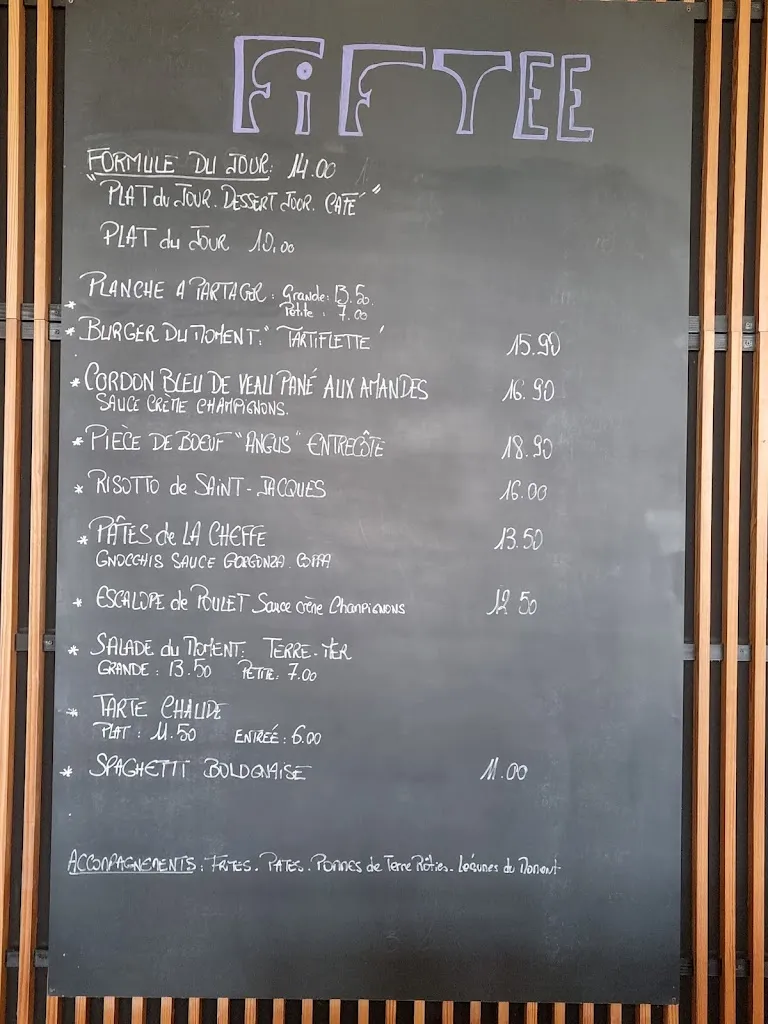 FiFTEE
FORMULE DU JOUR: 14.00
"PLAT du JOUR. DESSERT JOUR. CAFÉ"
PLAT du JOUR 10.00
PLANCHE A PARTAGER : Grande: 13.50.
Petite : 7.00
* BURGER DU MOMENT: "TARTIFLETTE" 15.90
* CORDON BLEU DE VEAU PANÉ AUX AMANDES 16.90
SAUCE CRÈME CHAMPIGNONS.
* PIÈCE DE BOEUF "ANGUS" ENTRECÔTE 18.90
* RISOTTO de SAINT-JACQUES 16.00
* PÂTES de LA CHEFFE 13.50
GNOCCHIS SAUCE GORGONZA. COPPA
* ESCALOPE de POULET Sauce crème Champignons 12 50
* SALADE du MOMENT: TERRE-MER
GRANDE : 13.50 PETITE: 7.00
* TARTE CHAUDE
PLAT : 11.50 ENTREÉ : 6.00
* SPAGHETTI BOLOGNAISE 11.00
ACCOMPAGNEMENTS : FRITES. PATES. POMMES de Terre Rôties. Légumes du Moment